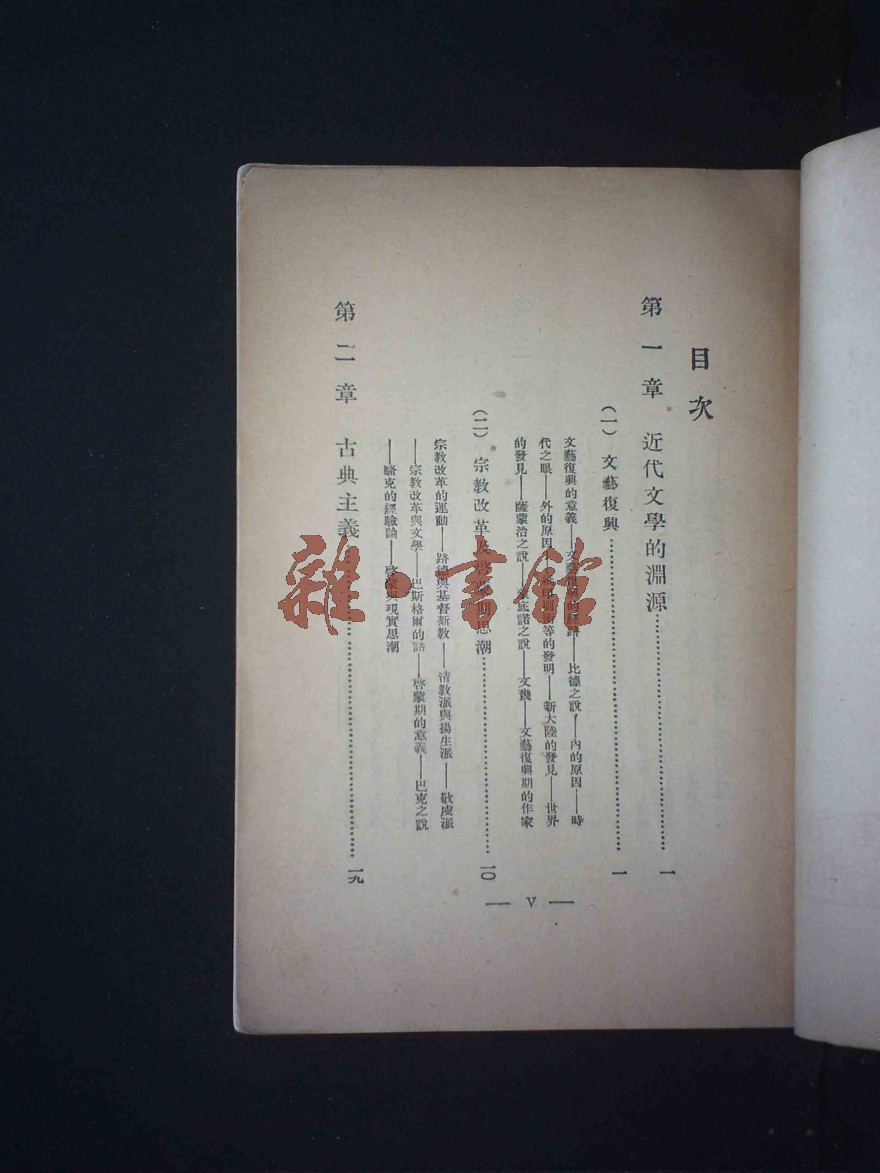 目次
第一章 近代文學的淵源……一
(一) 文藝復興……一
文藝復興的意義——文藝復興的——比德之說——內的原因——時
代之眼——外的原因——等的發明——新大陸的發見——世界
的發見——薩蒙治之說——底諾之說——文藝復興期的作家
(二) 宗教改革及啓蒙期思潮……一〇
宗教改革的運動——路德與基督新教——清教派與揚生派——敬虔派
——宗教改革與文學——巴斯格爾的話——啓蒙期的意義——巴克之說
——駱克的經驗論——啓蒙與現實思潮
第二章 古典主義……一九
— V —
雜·書館